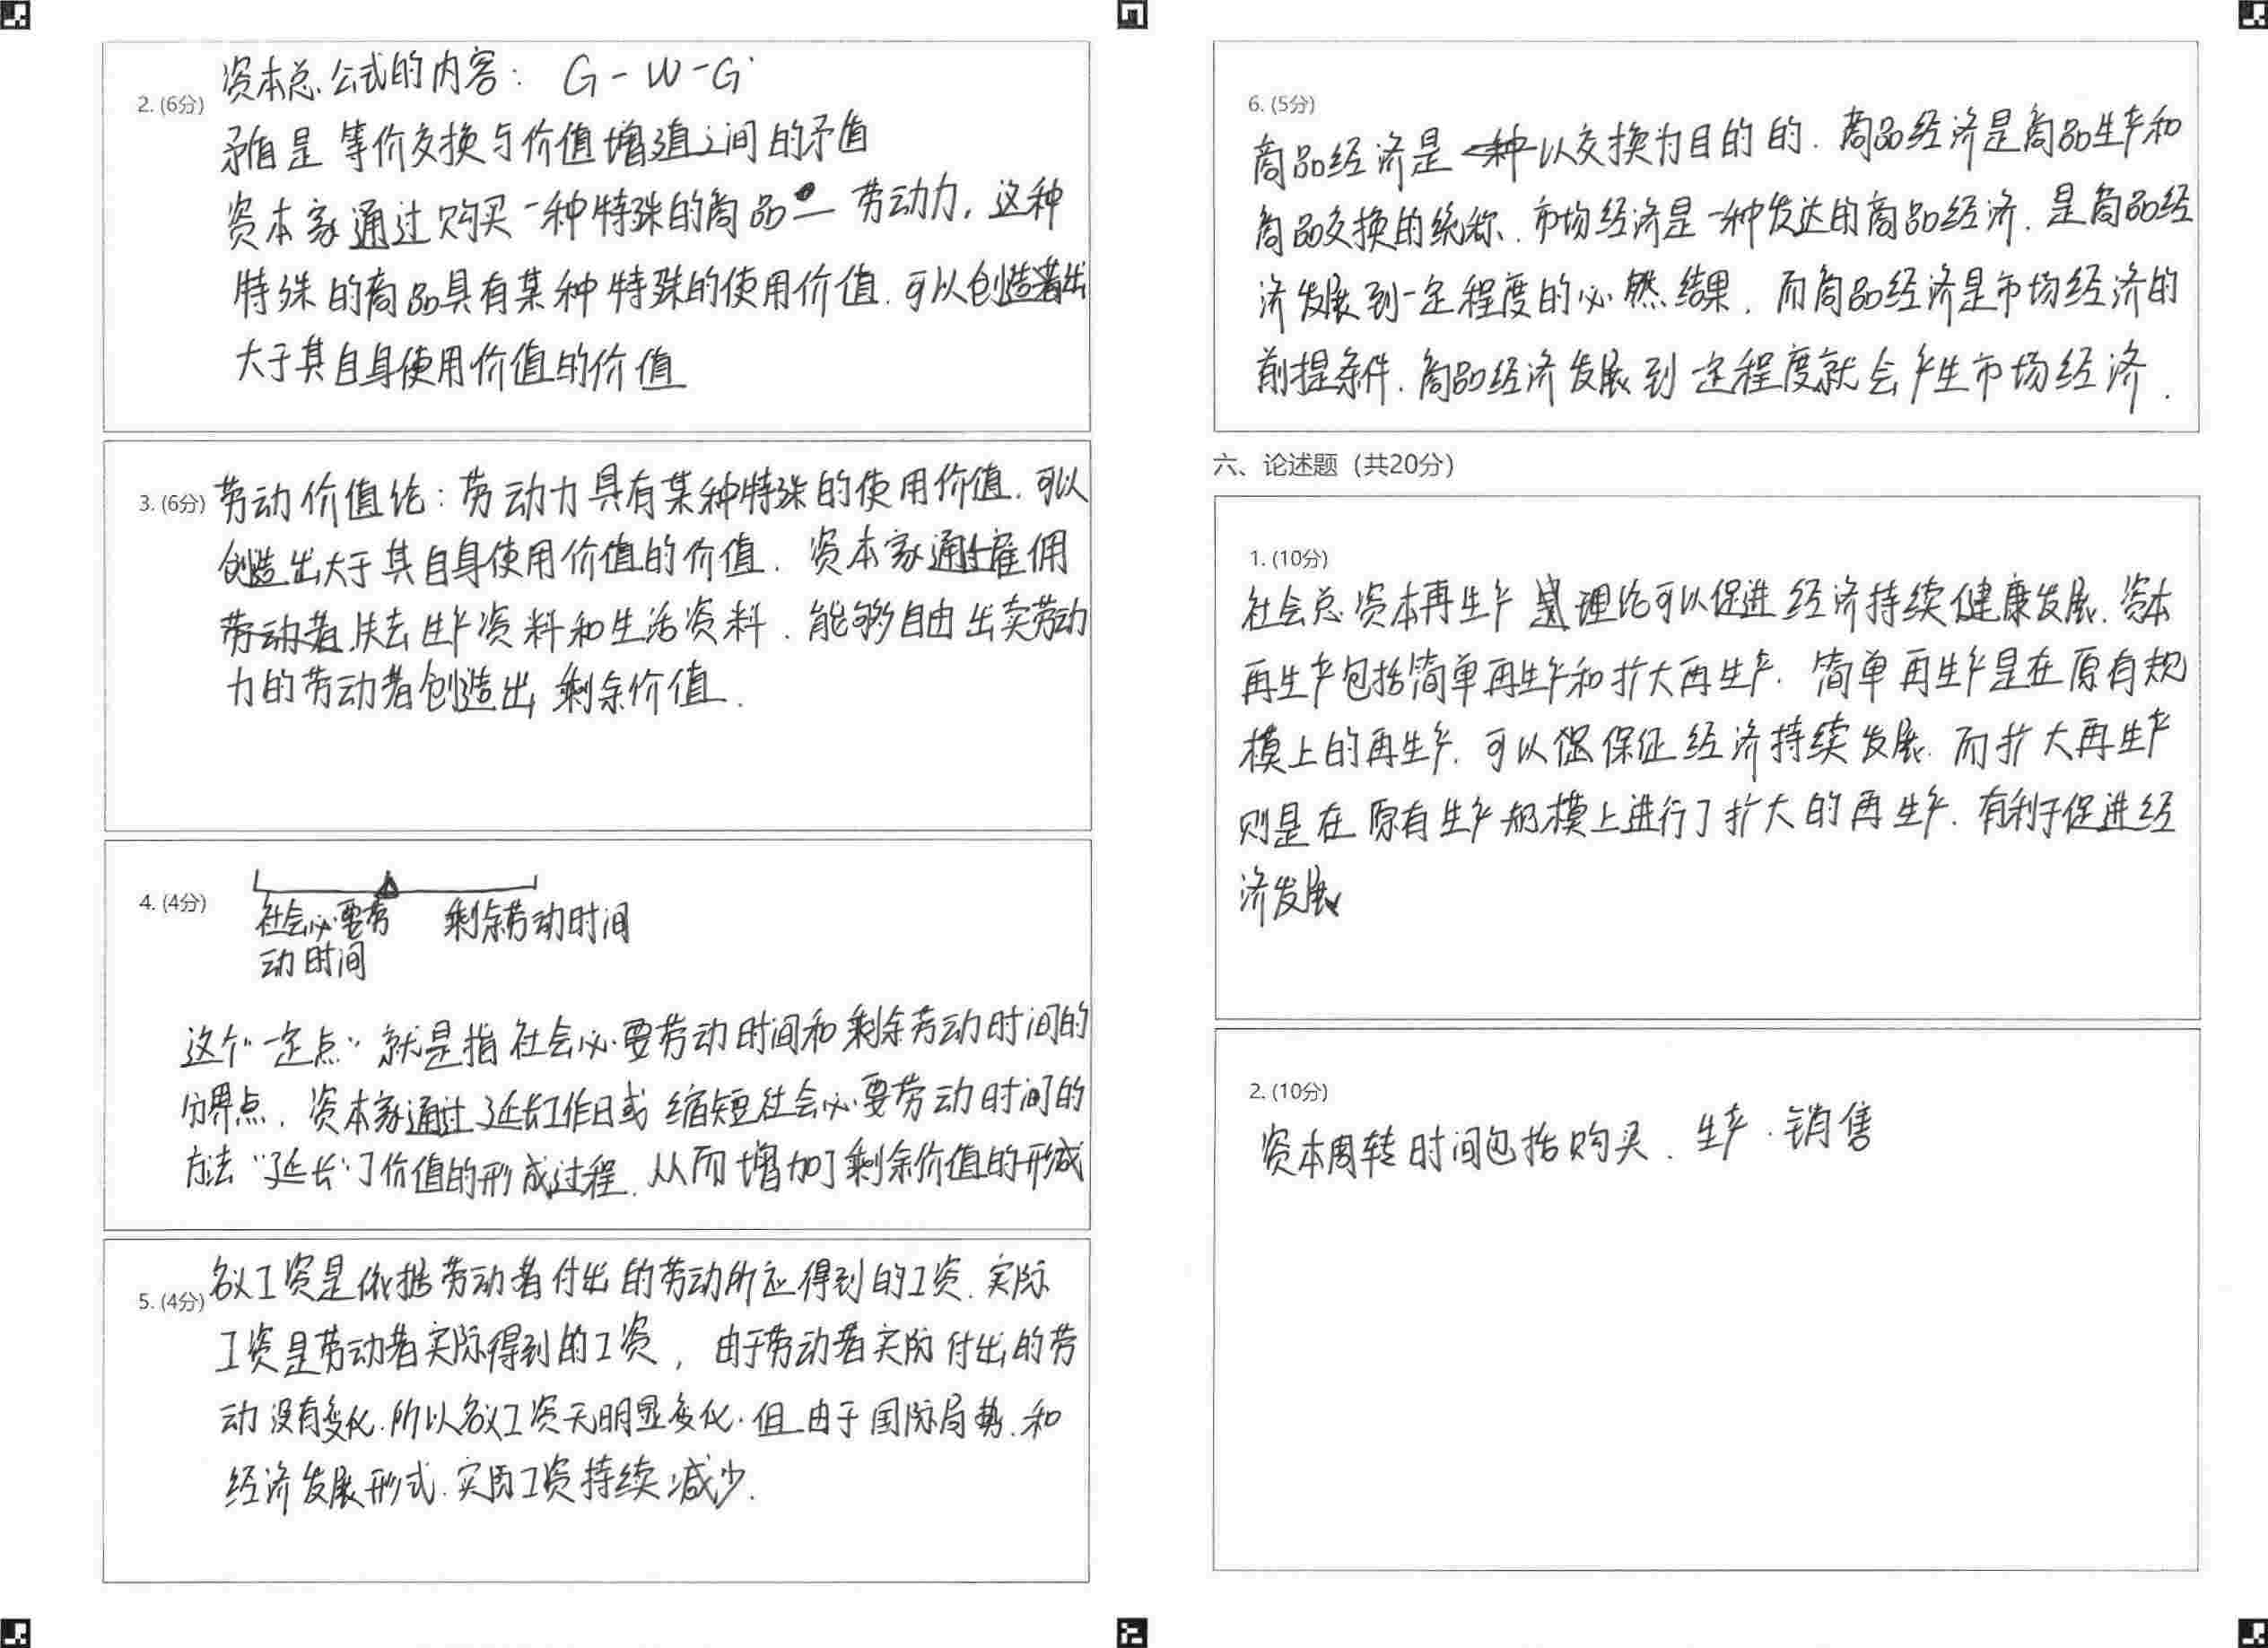 2. (6分)
资本总公式的内容: G - W - G'
矛盾是等价交换与价值增殖之间的矛盾
资本家通过购买一种特殊的商品— 劳动力, 这种
特殊的商品具有某种特殊的使用价值. 可以创造著出
大于其自身使用价值的价值
3. (6分)
劳动价值论: 劳动力具有某种特殊的使用价值. 可以
创造出大于其自身使用价值的价值. 资本家通过雇佣
劳动者.失去生产资料和生活资料. 能够自由出卖劳动
力的劳动者创造出剩余价值.
4. (4分)
社会必要劳 剩余劳动时间
动时间
这个"一定点"就是指社会必要劳动时间和剩余劳动时间的
分界点. 资本家通过延长工作日或缩短社会必要劳动时间的
方法"延长"了价值的形成过程. 从而增加了剩余价值的形成
5. (4分)
名义工资是依据劳动者付出的劳动所应得到的工资. 实际
工资是劳动者实际得到的工资, 由于劳动者实际付出的劳
动没有变化.所以名义工资无明显变化.但由于国际局势.和
经济发展形式.实际工资持续减少.
6. (5分)
商品经济是一种以交换为目的的. 商品经济是商品生产和
商品交换的统称. 市场经济是一种发达的商品经济. 是商品经
济发展到一定程度的必然结果. 而商品经济是市场经济的
前提条件. 商品经济发展到一定程度就会产生市场经济.
六、论述题 (共20分)
1. (10分)
社会总资本再生产理论可以促进经济持续健康发展. 资本
再生产包括简单再生产和扩大再生产. 简单再生产是在原有规
模上的再生产. 可以保证经济持续发展. 而扩大再生产
则是在原有生产规模上进行了扩大的再生产. 有利于促进经
济发展
2. (10分)
资本周转时间包括购买. 生产. 销售